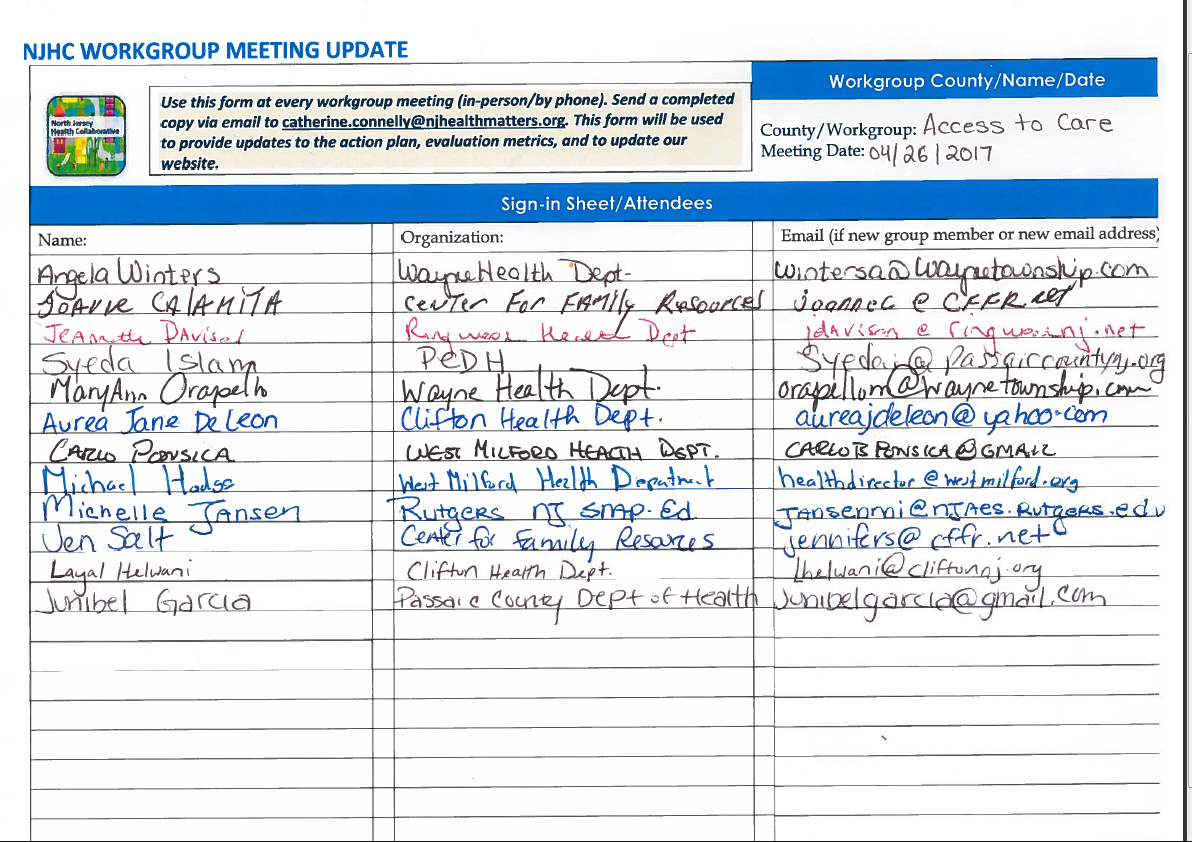 NJHC WORKGROUP MEETING UPDATE
North Jersey
Health Collaborative
Use this form at every workgroup meeting (in-person/by phone). Send a completed
copy via email to catherine.connelly@njhealthmatters.org. This form will be used
to provide updates to the action plan, evaluation metrics, and to update our
website.
Workgroup County/Name/Date
County/Workgroup: Access to Care
Meeting Date: 04/26/2017
Sign-in Sheet/Attendees
Name: Organization: Email (if new group member or new email address)
Angela Winters Wayne Health Dept- wintersa@waynetownship.com
JOANNE CALAMITA CENTER FOR FAMILY RESOURCES joannec @ CFFR.net
Jeannette Davison Ringwood Health Dept jdavison @ ringwoodnj.net
Syeda Islam PCDH Syedai@passaiccountynj.org
MaryAnn Orapello Wayne Health Dept. orapellom@waynetownship.com
Aurea Jane De Leon Clifton Health Dept. aureajdeleon@yahoo.com
CARLO PONSICA WEST MILFORD HEALTH DEPT. CARLOBPONSICA@GMAIL
Michael Hodge West Milford Health Department healthdirector@westmilford.org
Michelle Jansen Rutgers NJ SNAP-Ed Jansenmi@NJAES.RUTGERS.edu
Jen Salt Center for Family Resources jennifers@cffr.net
Layal Helwani Clifton Health Dept. lhelwani@cliftonnj.org
Junibel Garcia Passaic County Dept of Health Junibelgarcia@gmail.com